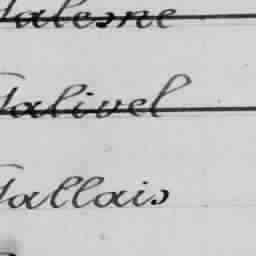 Talesne
Talivel
Tallais